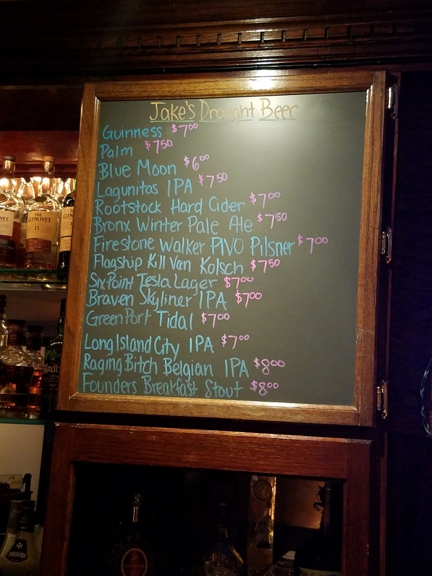 Jake's Draught Beer
Guinness $7.00
Palm $7.50
Blue Moon $6.00
Lagunitas IPA $7.50
Rootstock Hard Cider $7.00
Bronx Winter Pale Ale $7.50
Firestone Walker PIVO Pilsner $7.00
Flagship Kill Van Kolsch $7.50
SixPoint Tesla Lager $7.00
Braven Skyliner IPA $7.00
GreenPort Tidal $7.00
Long Island City IPA $7.00
Raging Bitch Belgian IPA $8.00
Founders Breakfast Stout $8.00
THE
GLENLIVET